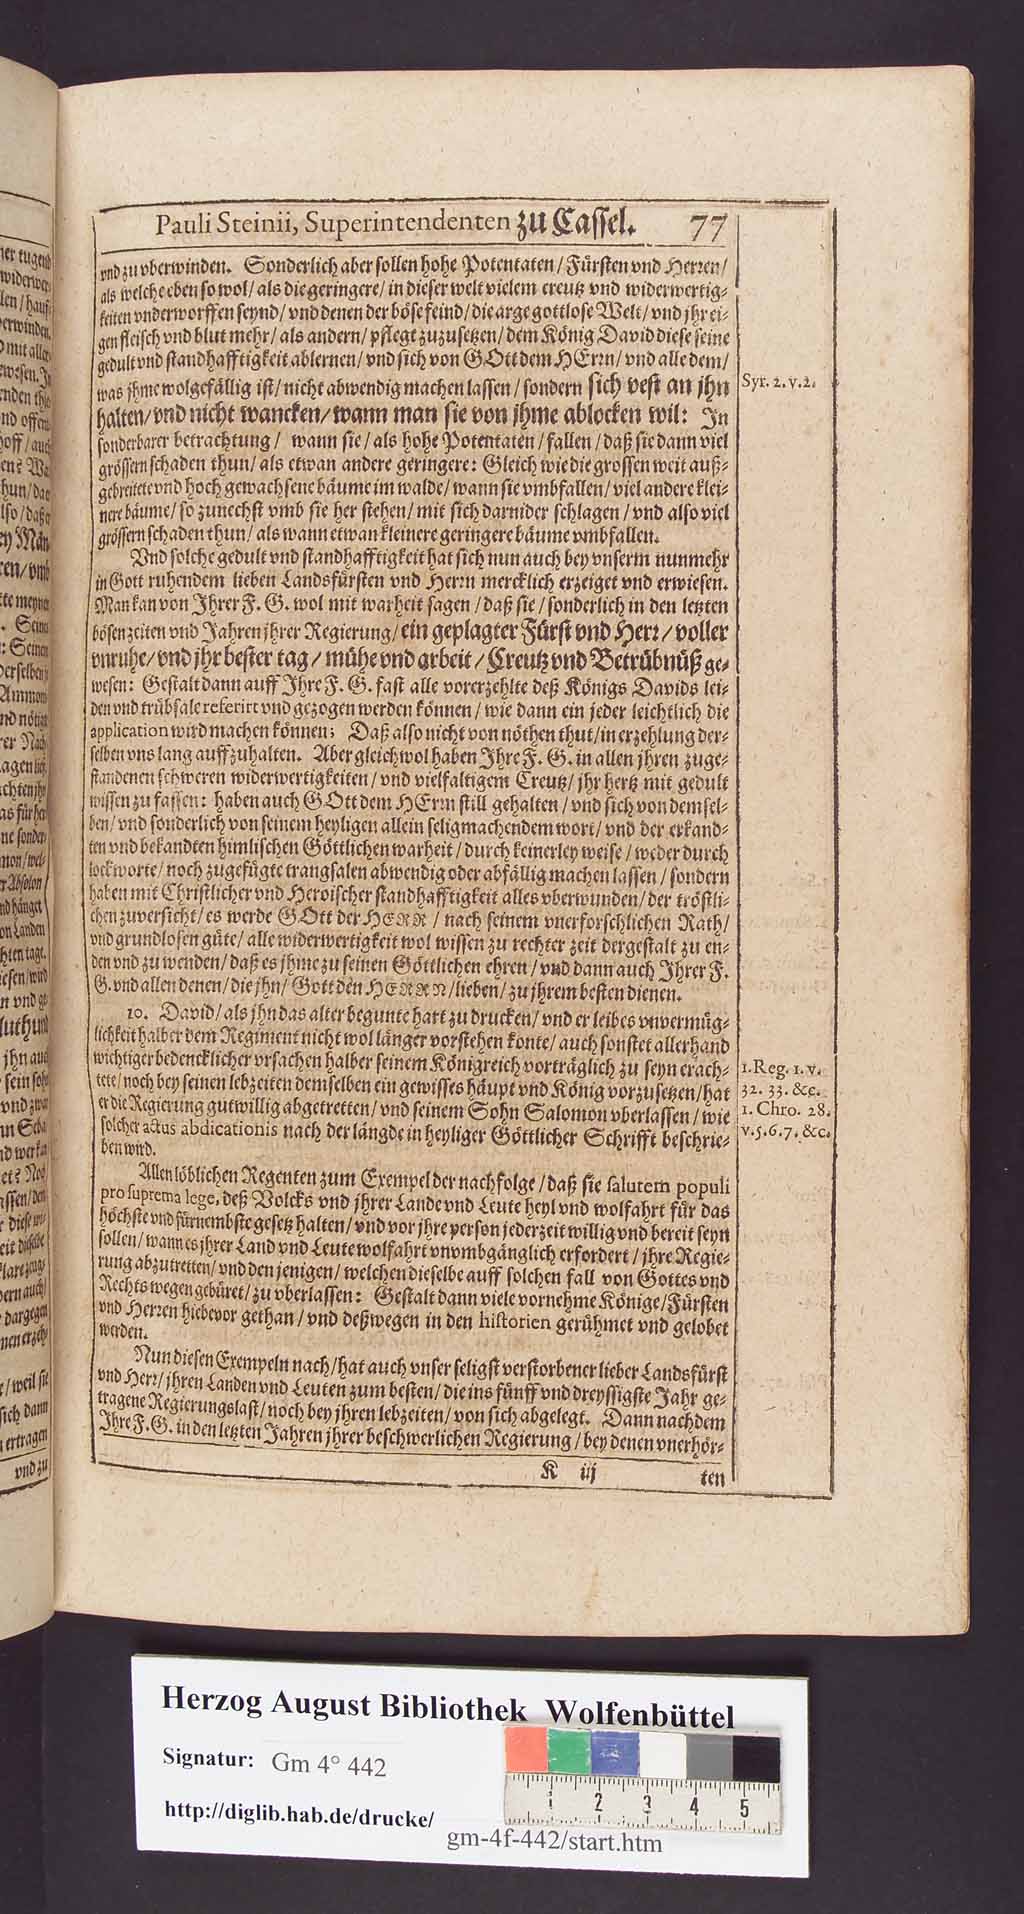 Pauli Steinii, Superintendenten zu Cassel. 77
vnd zu vberwinden. Sonderlich aber sollen hohe Potentaten / Fürsten vnd Herren /
als welche eben so wol / als die geringere / in dieser welt vielem creutz vnd widerwertig-
keiten vnderworffen seynd / vnd denen der böse feind / die arge gottlose Welt / vnd jhr ei-
gen fleisch vnd blut mehr / als andern / pflegt zuzusetzen / dem König David diese seine
gedult vnd standhafftigkeit ablernen / vnd sich von GOtt dem HErrn / vnd alle dem /
was jhme wolgefällig ist / nicht abwendig machen lassen / sondern sich vest an jhn
halten / vnd nicht wancken / wann man sie von jhme ablocken wil: In
sonderbarer betrachtung / wann sie / als hohe Potentaten / fallen / daß sie dann viel
grössern schaden thun / als etwan andere geringere: Gleich wie die grossen weit auß-
gebreitete vnd hoch gewachsene bäume im walde / wann sie vmbfallen / viel andere klei-
nere bäume / so zunechst vmb sie her stehen / mit sich darnider schlagen / vnd also viel
grössern schaden thun / als wann etwan kleinere geringere bäume vmbfallen.
Vnd solche gedult vnd standhafftigkeit hat sich nun auch bey vnserm nunmehr
in Gott ruhendem lieben Landsfürsten vnd Herrn mercklich erzeiget vnd erwiesen.
Man kan von Ihrer F. G. wol mit warheit sagen / daß sie / sonderlich in den letzten
bösen zeiten vnd Jahren jhrer Regierung / ein geplagter Fürst vnd Herr / voller
vnruhe / vnd jhr bester tag / mühe vnd arbeit / Creutz vnd Betrübnüß ge-
wesen: Gestalt dann auff Ihre F. G. fast alle vorerzehlte deß Königs Davids lei-
den vnd trübsale referirt vnd gezogen werden können / wie dann ein jeder leichtlich die
application wird machen können; Daß also nicht von nöthen thut / in erzehlung der-
selben vns lang auffzuhalten. Aber gleichwol haben Ihre F. G. in allen jhren zuge-
standenen schweren widerwertigkeiten / vnd vielfaltigem Creutz / jhr hertz mit gedult
wissen zu fassen: haben auch GOtt dem HErrn still gehalten / vnd sich von demsel-
ben / vnd sonderlich von seinem heyligen allein seligmachendem wort / vnd der erkand-
ten vnd bekandten himlischen Göttlichen warheit / durch keinerley weise / weder durch
lockworte / noch zugefügte trangsalen abwendig oder abfällig machen lassen / sondern
haben mit Christlicher vnd Heroischer standhafftigkeit alles vberwunden / der tröstli-
chen zuversicht / es werde GOtt der HERR / nach seinem vnerforschlichen Rath /
vnd grundlosen güte / alle widerwertigkeit wol wissen zu rechter zeit dergestalt zu en-
den vnd zu wenden / daß es jhme zu seinen Göttlichen ehren / vnd dann auch Ihrer F.
G. vnd allen denen / die jhn / Gott den HERRN / lieben / zu jhrem besten dienen.
10. David / als jhn das alter begunte hart zu drucken / vnd er leibes vnvermüg-
lichkeit halber dem Regiment nicht wol länger vorstehen konte / auch sonstet allerhand
wichtiger bedencklicher vrsachen halber seinem Königreich vorträglich zu seyn erach-
tete / noch bey seinen lebzeiten demselben ein gewisses häupt vnd König vorzusetzen / hat
er die Regierung gutwillig abgetretten / vnd seinem Sohn Salomon vberlassen / wie
solcher actus abdicationis nach der längde in heyliger Göttlicher Schrifft beschrie-
ben wird.
Allen löblichen Regenten zum Exempel der nachfolge / daß sie salutem populi
pro suprema lege, deß Volcks vnd jhrer Lande vnd Leute heyl vnd wolfahrt für das
höchste vnd fürnembste gesetz halten / vnd vor jhre person jederzeit willig vnd bereit seyn
sollen / wann es jhrer Land vnd Leute wolfahrt vnvmbgänglich erfordert / jhre Regie-
rung abzutretten / vnd den jenigen / welchen dieselbe auff solchen fall von Gottes vnd
Rechts wegen gebüret / zu vberlassen: Gestalt dann viele vornehme Könige / Fürsten
vnd Herren hiebevor gethan / vnd deßwegen in den historien gerühmet vnd gelobet
werden.
Nun diesen Exempeln nach / hat auch vnser seligst verstorbener lieber Landsfürst
vnd Herr / jhren Landen vnd Leuten zum besten / die ins fünff vnd dreyssigste Jahr ge-
tragene Regierungslast / noch bey jhren lebzeiten / von sich abgelegt. Dann nachdem
Ihre F. G. in den letzten Jahren jhrer beschwerlichen Regierung / bey denen vnerhör-
K iij ten
Syr. 2. v. 2.
1. Reg. 1. v.
32. 33. &c.
1. Chro. 28.
v. 5. 6. 7. &c.
Herzog August Bibliothek Wolfenbüttel
Signatur: Gm 4° 442
http://diglib.hab.de/drucke/
gm-4f-442/start.htm
1 2 3 4 5